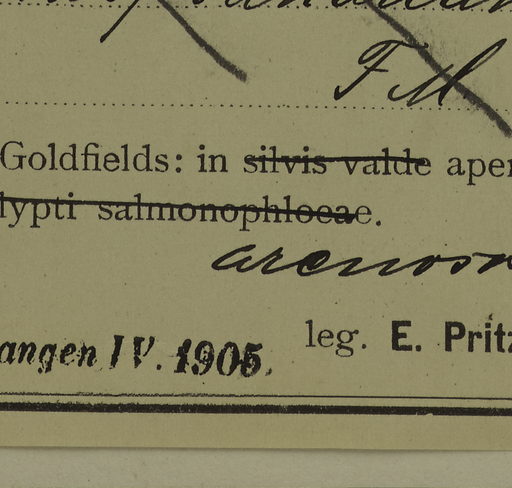 F. M.
Goldfields: in silvis valde aper
lypti salmonophloeae.
arenos
angen IV. 1905.
leg. E. Pritz